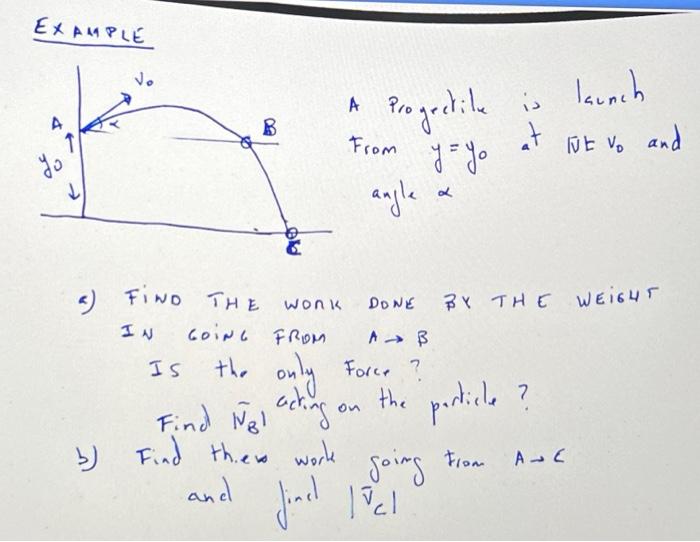 EXAMPLE
V₀
A
α
B
y₀
C
A Progectile is launch
From y=y₀ at |V̄|= V₀ and
angle α
a) FIND THE WORK DONE BY THE WEIGHT
IN GOING FROM A → B
IS the only Force ?
acting on the particle ?
Find |V̄B|
b) Find the work going From A → C
and find |V̄C|